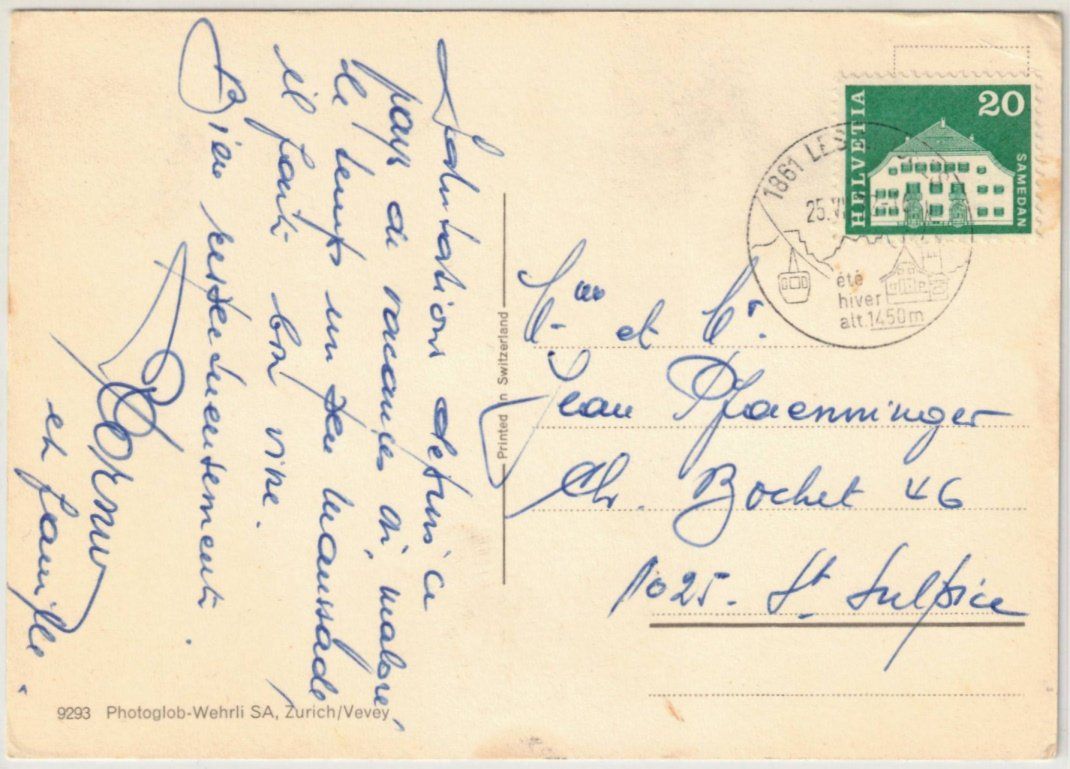 Salutations depuis ce
pays de vacances où, malgré
le temps un peu maussade
il fait bon vivre.
Bien respectueusement
et famille
9293 Photoglob-Wehrli SA, Zurich/Vevey
Printed in Switzerland
HELVETIA
20
SAMEDAN
1861 LES
25.
été
hiver
alt. 1450m
Mme et Mr.
Jean Pfaenninger
Ch. Bochet 46
1025. St Sulpice